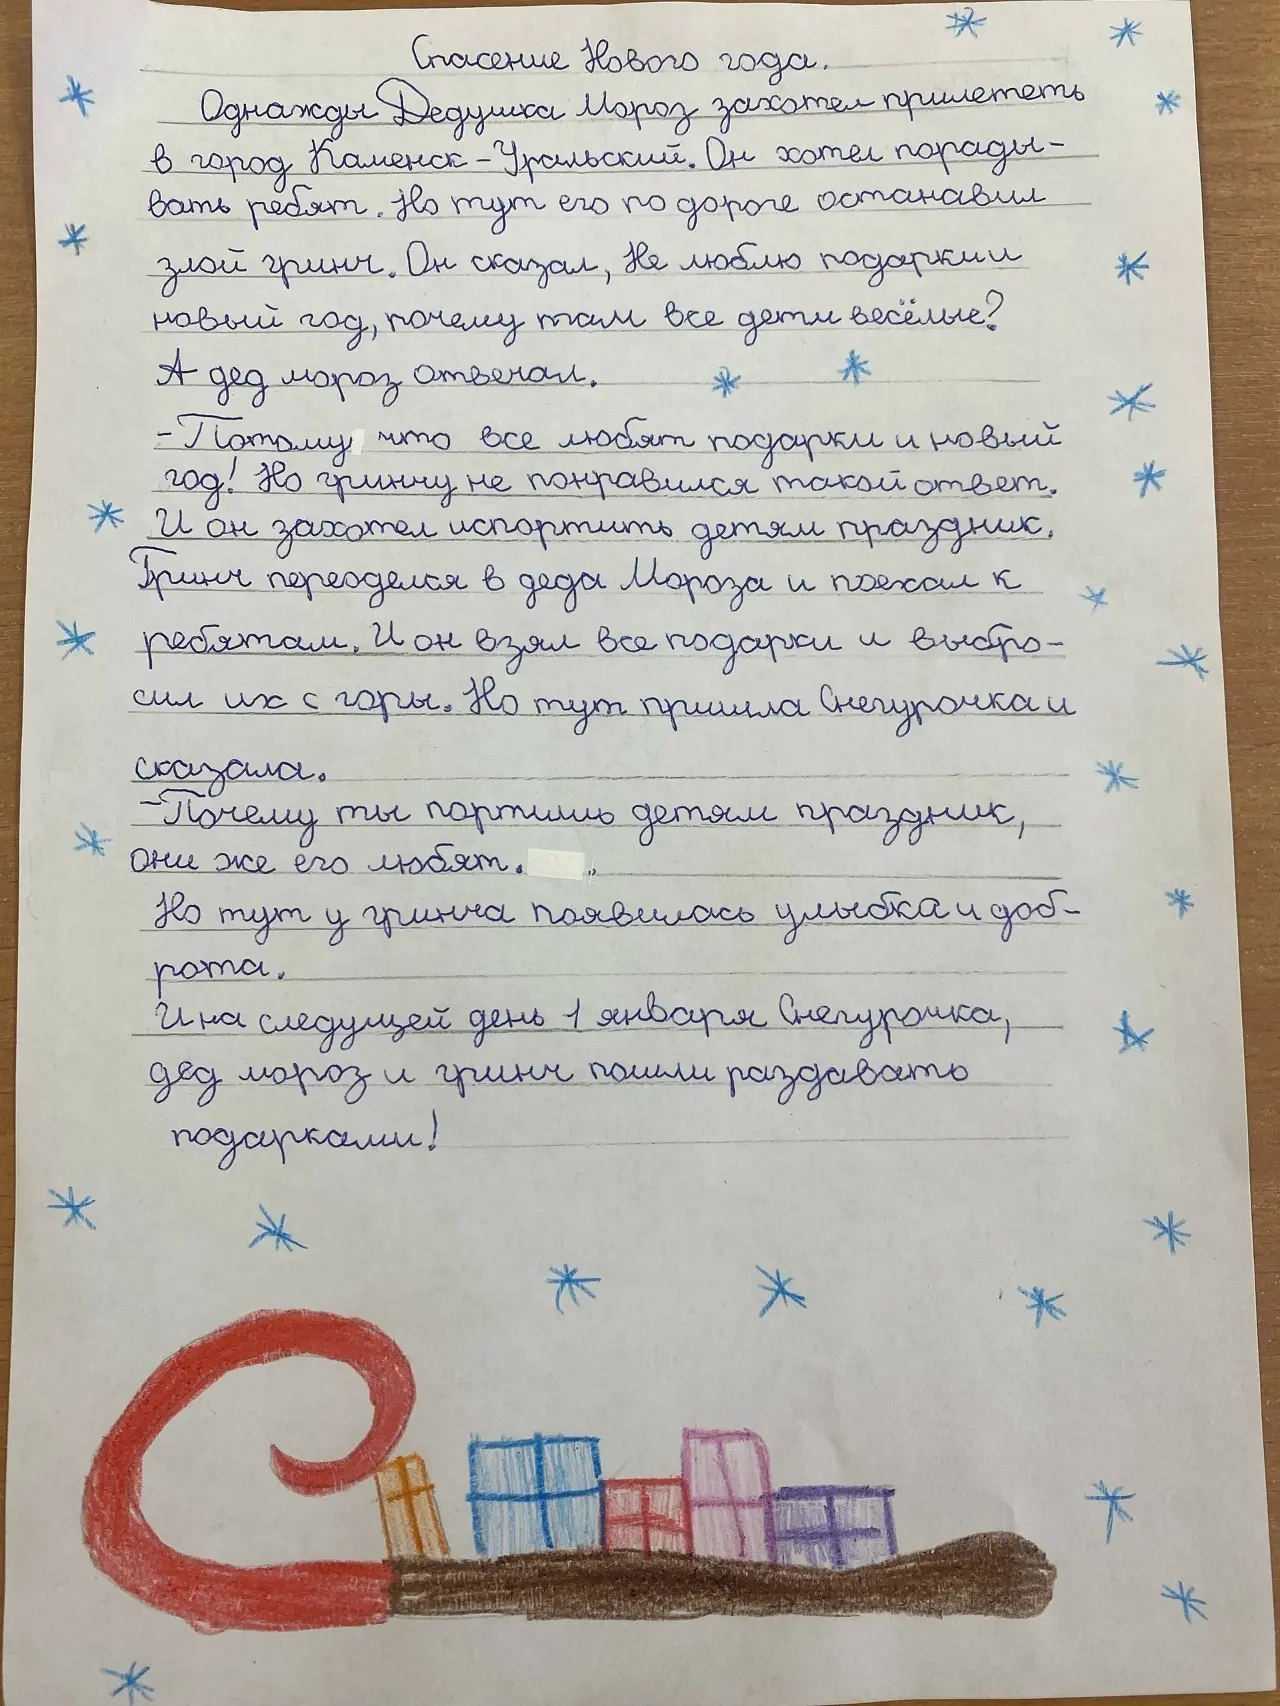 Спасение Нового года.
Однажды Дедушка Мороз захотел прилететь
в город Каменск-Уральский. Он хотел порады-
вать ребят. Но тут его по дороге останавил
злой гринч. Он сказал, Не люблю подарки и
новый год, почему там все дети весёлые?
А дед мороз отвечал.
-Потому что все любят подарки и новый
год! Но гринчу не понравился такой ответ.
И он захотел испортить детям праздник.
Гринч переоделся в деда Мороза и поехал к
ребятам. И он взял все подарки и выбро-
сил их с горы. Но тут пришла Снегурочка и
сказала.
-Почему ты портишь детям праздник,
они же его любят.
Но тут у гринча появилась улыбка и доб-
рота.
И на следущей день 1 января Снегурочка,
дед мороз и гринч пошли раздавать
подарками!